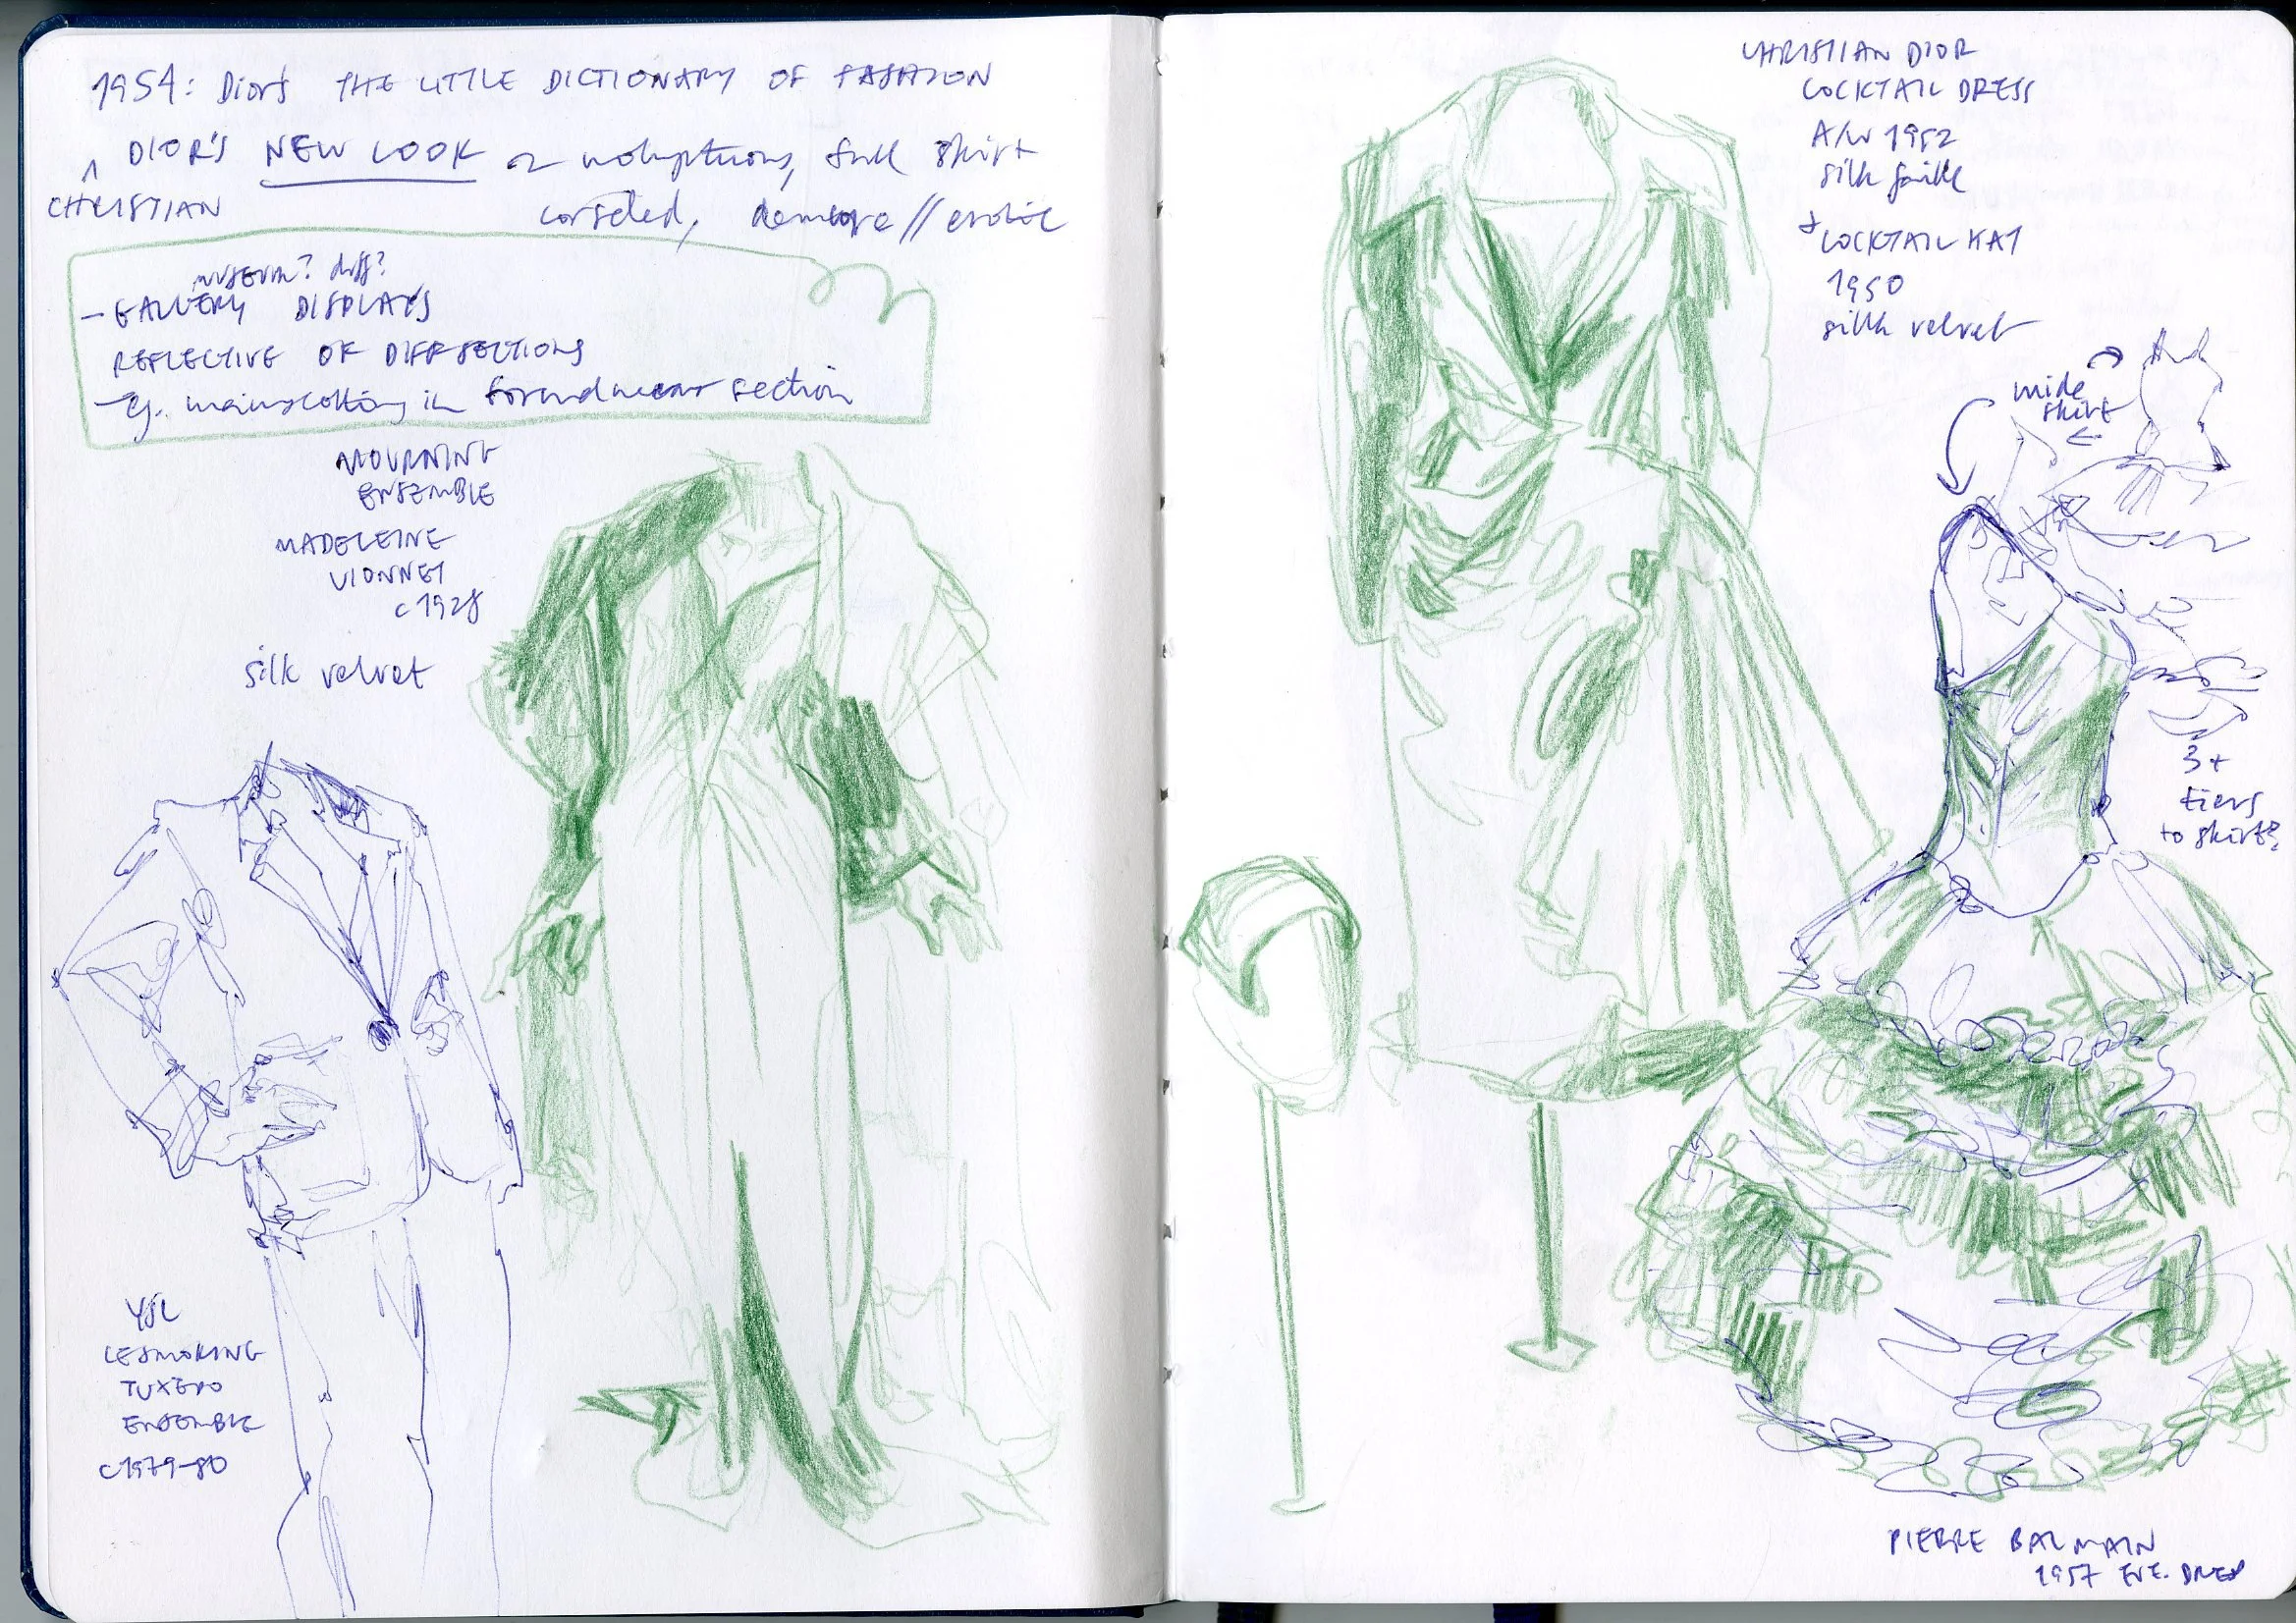 1954: Dior's THE LITTLE DICTIONARY OF FASHION
^ DIOR'S NEW LOOK ~ voluptuous, full skirt
CHRISTIAN
corseted, demure // erotic
MUSEUM? diff?
- GALLERY DISPLAYS
REFLECTIVE OF DIFF SECTIONS
- eg. wainscotting in section
MOURNING
ENSEMBLE
MADELEINE
VIONNET
c 1928
silk velvet
YSL
LE SMOKING
TUXEDO
ENSEMBLE
c1979-80
CHRISTIAN DIOR
COCKTAIL DRESS
A/W 1952
silk faille
+ COCKTAIL HAT
1950
silk velvet
skirt
3+
tiers
to skirt?
PIERRE BALMAIN
1957 EVE. DRESS